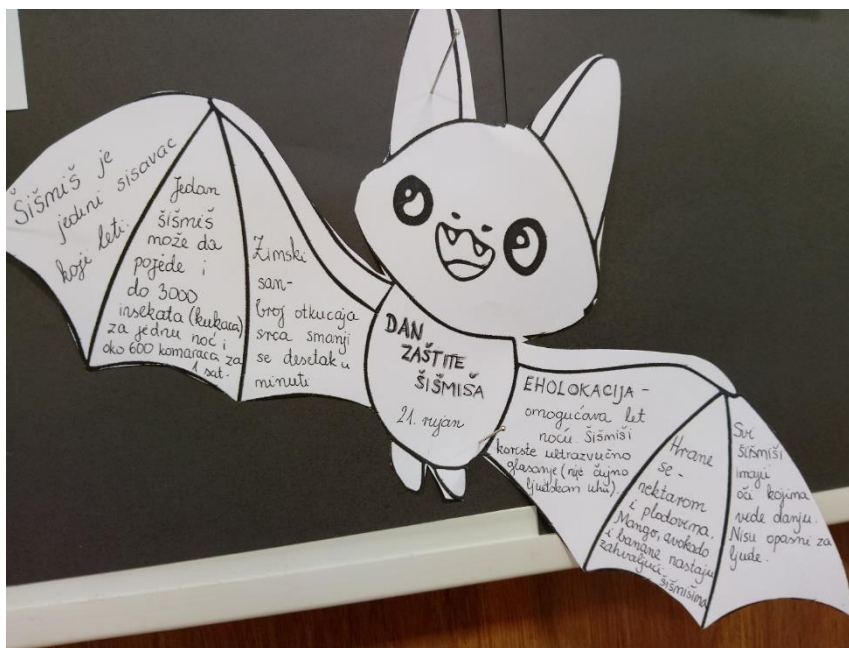 Šišmiš je
jedini sisavac
koji leti.
Jedan
šišmiš
može da
pojede i
do 3000
insekata (kukaca)
za jednu noć i
oko 600 komaraca za
1 sat.
Zimski
san-
broj otkucaja
srca smanji
se desetak u
minuti
DAN
ZAŠTITE
ŠIŠMIŠA
21. rujan
EHOLOKACIJA -
omogućava let
noću. Šišmiši
koriste ultrazvučno
glasanje (nije čujno
ljudskom uhu).
Hrane
se -
nektarom
i plodovima.
Mango, avokado
i banane nastaju
zahvaljujući
šišmišima
Svi
šišmiši
imaju
oči kojima
vide danju.
Nisu opasni za
ljude.